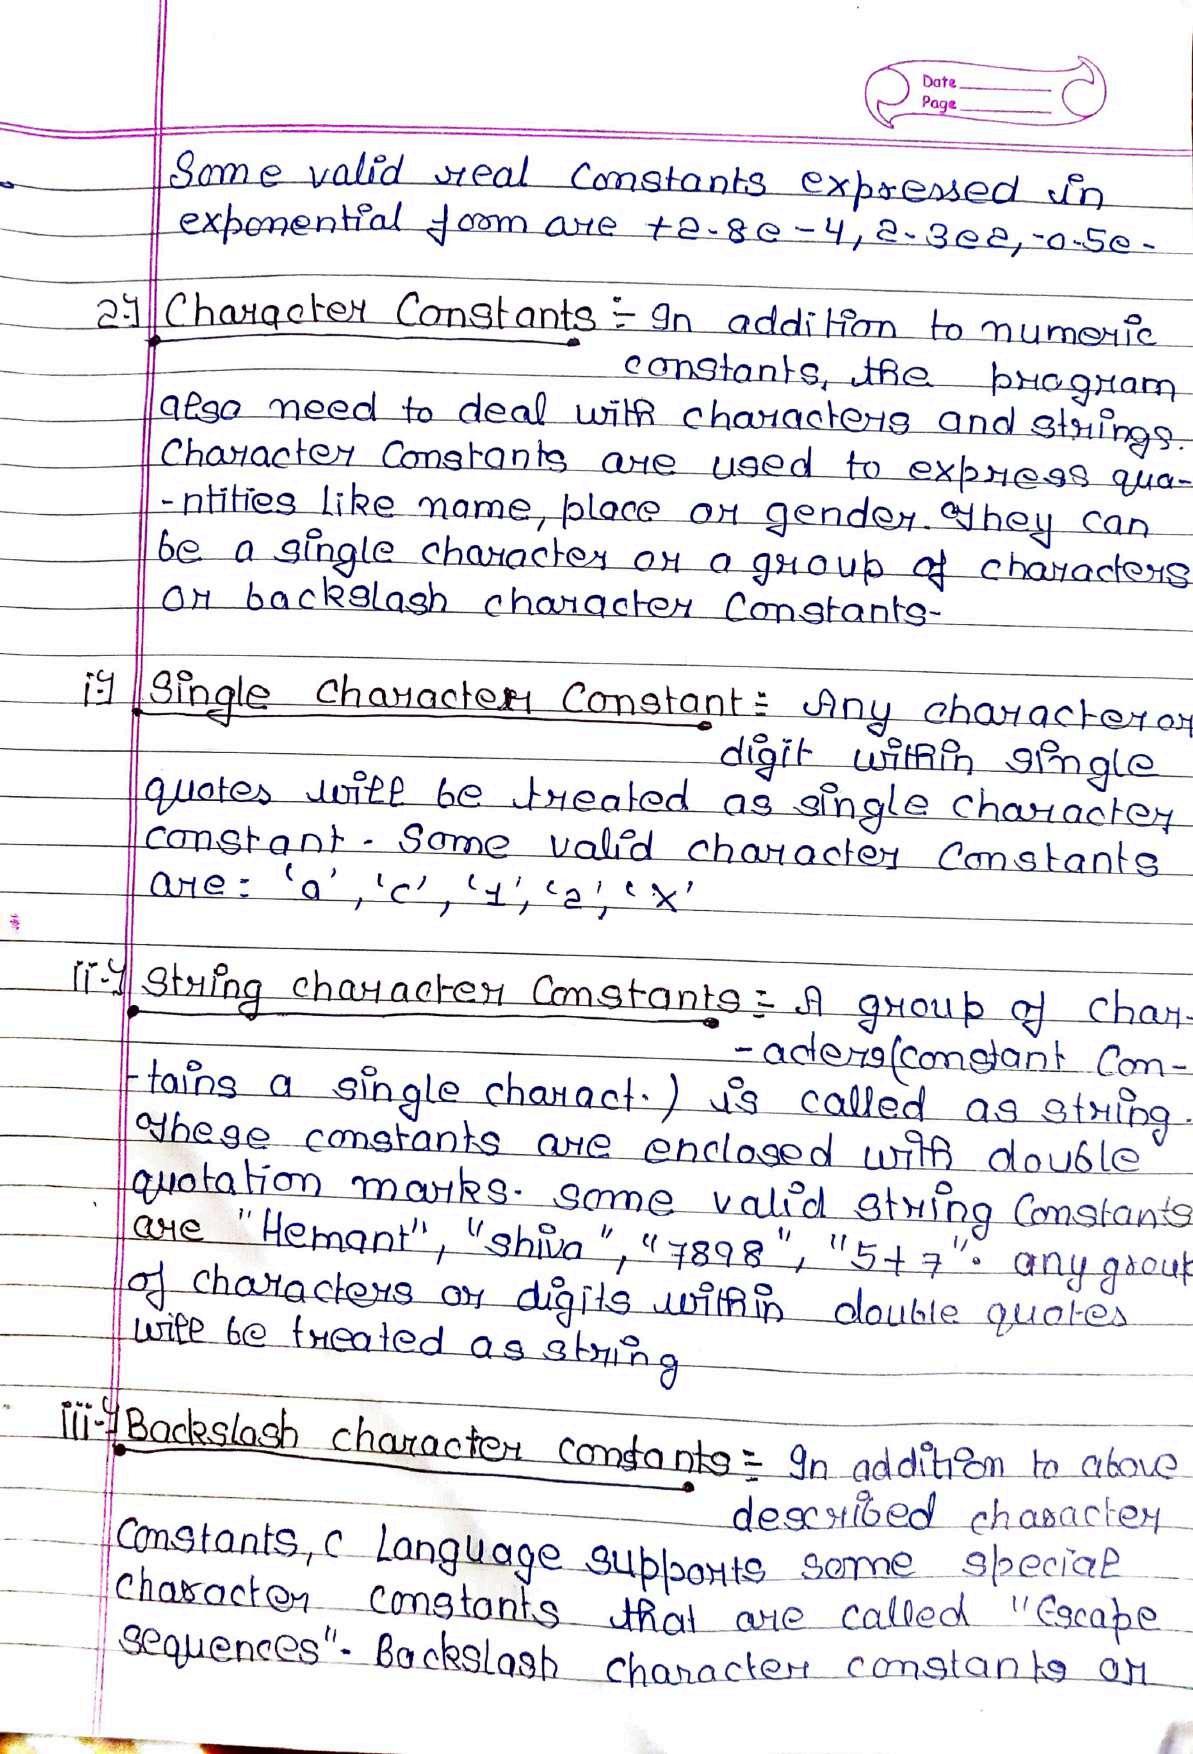 Date
Page
Some valid real Constants expressed in
exponential form are +2.8e-4, 2.3e2, -0.5e-
2.) Character Constants :- In addition to numeric
constants, the program
also need to deal with characters and strings.
Character Constants are used to express qua-
-ntities like name, place or gender. They can
be a single character or a group of characters
or backslash character Constants-
i.) Single Character Constant :- Any character or
digit within single
quotes will be treated as single character
constant. Some valid character Constants
are: 'a', 'c', '1', '2', 'x'
ii.) String character Constants :- A group of char-
-acters(constant Con-
-tains a single charact.) is called as string.
These constants are enclosed with double
quotation marks. Some valid string Constants
are "Hemant", "Shiva", "7898", "5+7". any group
of characters or digits within double quotes
will be treated as string
iii.) Backslash character constants :- In addition to above
described character
Constants, C Language supports some special
character constants that are called "Escape
sequences". Backslash character constants or